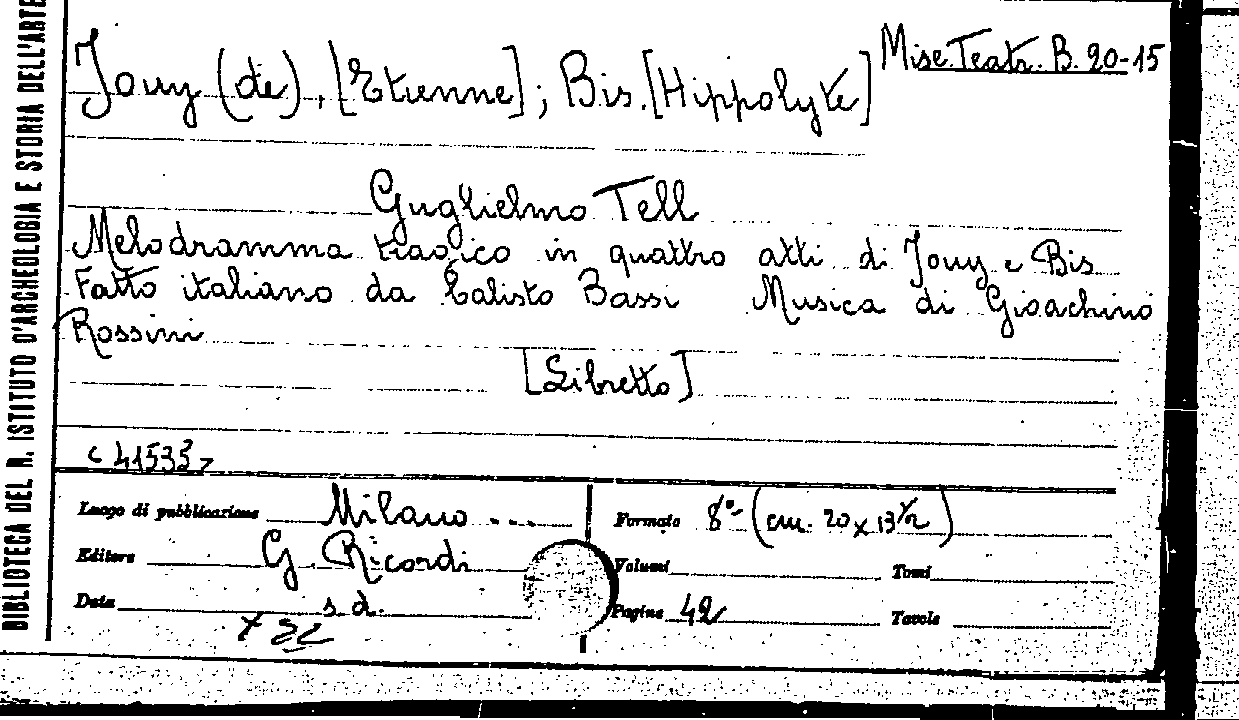 BIBLIOTECA DEL R. ISTITUTO D'ARCHEOLOGIA E STORIA DELL'ARTE
Misc. Teatr. B. 20-15
Jouy (de), [Etienne]; Bis. [Hippolyte]
Guglielmo Tell
Melodramma tragico in quattro atti di Jouy e Bis
Fatto italiano da Calisto Bassi Musica di Gioachino
Rossini
[Libretto]
c 41533
Luogo di pubblicazione Milano ....
Formato 8°- (cm. 20 x 13 1/2)
Editore G. Ricordi
Volumi Tomi
Data s. d.
Pagine 42 Tavole